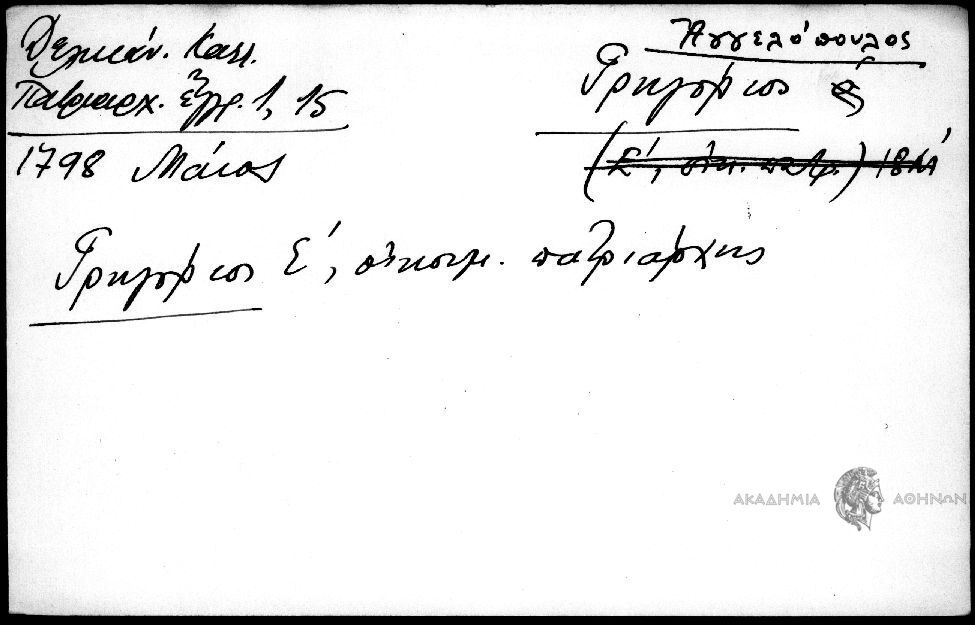 Δελικάν. Καλλ.
Πατριαρχ. ἔγγρ. 1, 15
1798 Μάιος
Ἀγγελόπουλος
Γρηγόριος
(Ε΄, οἰκ. πατρ.)
Γρηγόριος Ε΄, οἰκουμ. πατριάρχης
ΑΚΑΔΗΜΙΑ ΑΘΗΝΩΝ